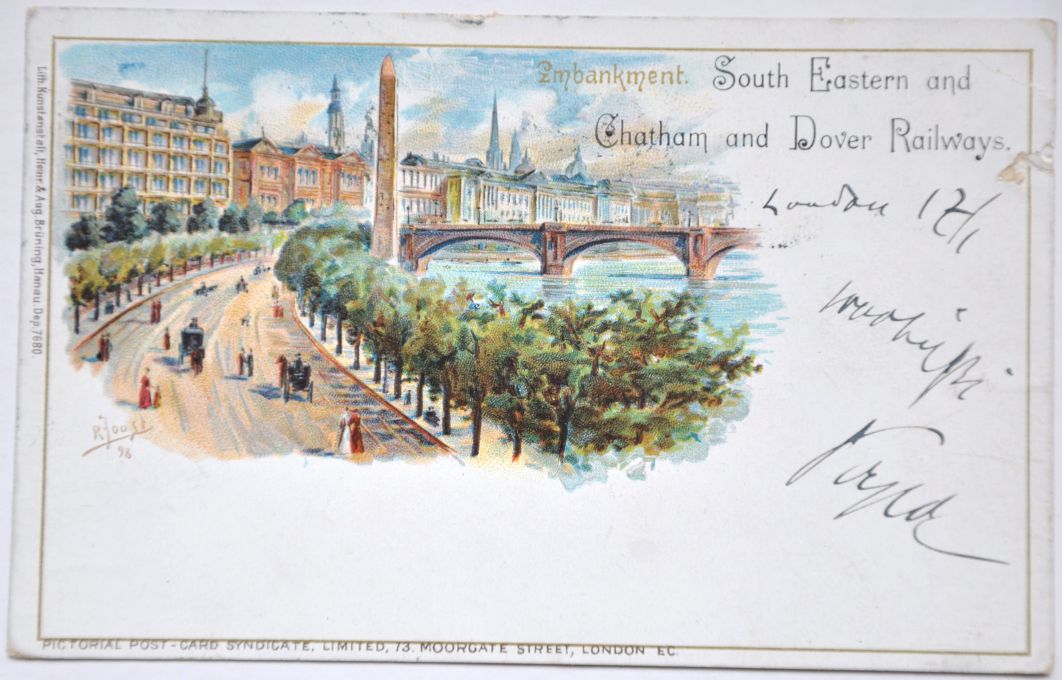 Embankment. South Eastern and
Chatham and Dover Railways.
London 17/1
Papa
R. Joost
96
Lith. Kunstanstalt, Heinr. & Aug. Brüning, Hanau. Dep. 7680.
PICTORIAL POST-CARD SYNDICATE, LIMITED, 73, MOORGATE STREET, LONDON EC.